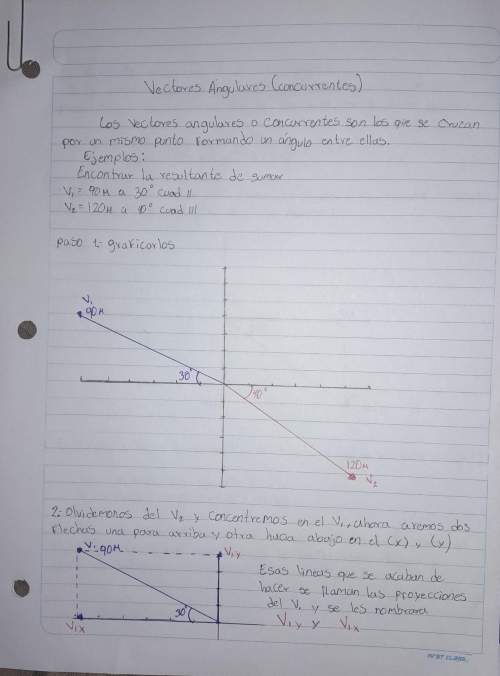 Vectores Angulares (concurrentes)
Los vectores angulares o concurrentes son los que se cruzan
por un mismo punto formando un ángulo entre ellas.
Ejemplos:
Encontrar la resultante de sumar
V₁ = 90M a 30° cuad II
V₂ = 120M a 40° cuad III
paso 1: graficarlos
V₁
90M
30°
40°
120M
V₂
2: Olvidemonos del V₂ y concentremos en el V₁, ahora aremos dos
flechas una para arriba y otra hacia abajo en el (x) y (y)
V₁ 90M
V₁y
30°
V₁x
Esas lineas que se acaban de
hacer se llaman las proyecciones
del V₁ y se les nombrara
V₁y y V₁x
FIRST CLASS